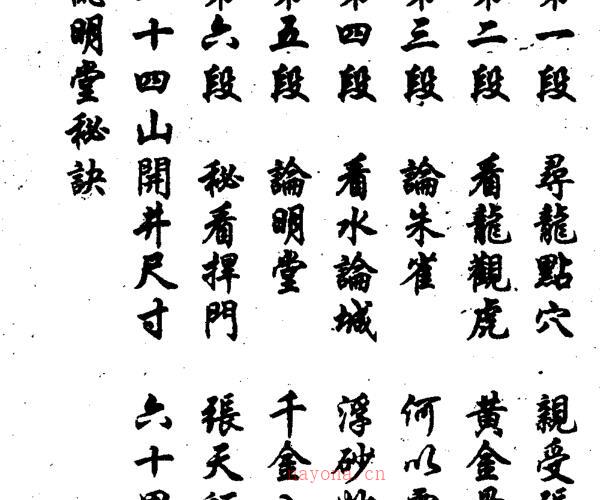 第一段 尋龍點穴 親受
第二段 看龍觀虎 黃金
第三段 論朱雀 何以
第四段 看水論城 浮砂
第五段 論明堂 千金
第六段 秘看捍門 張天
十四山開井尺寸 六十四
明堂秘訣
nayona.cn